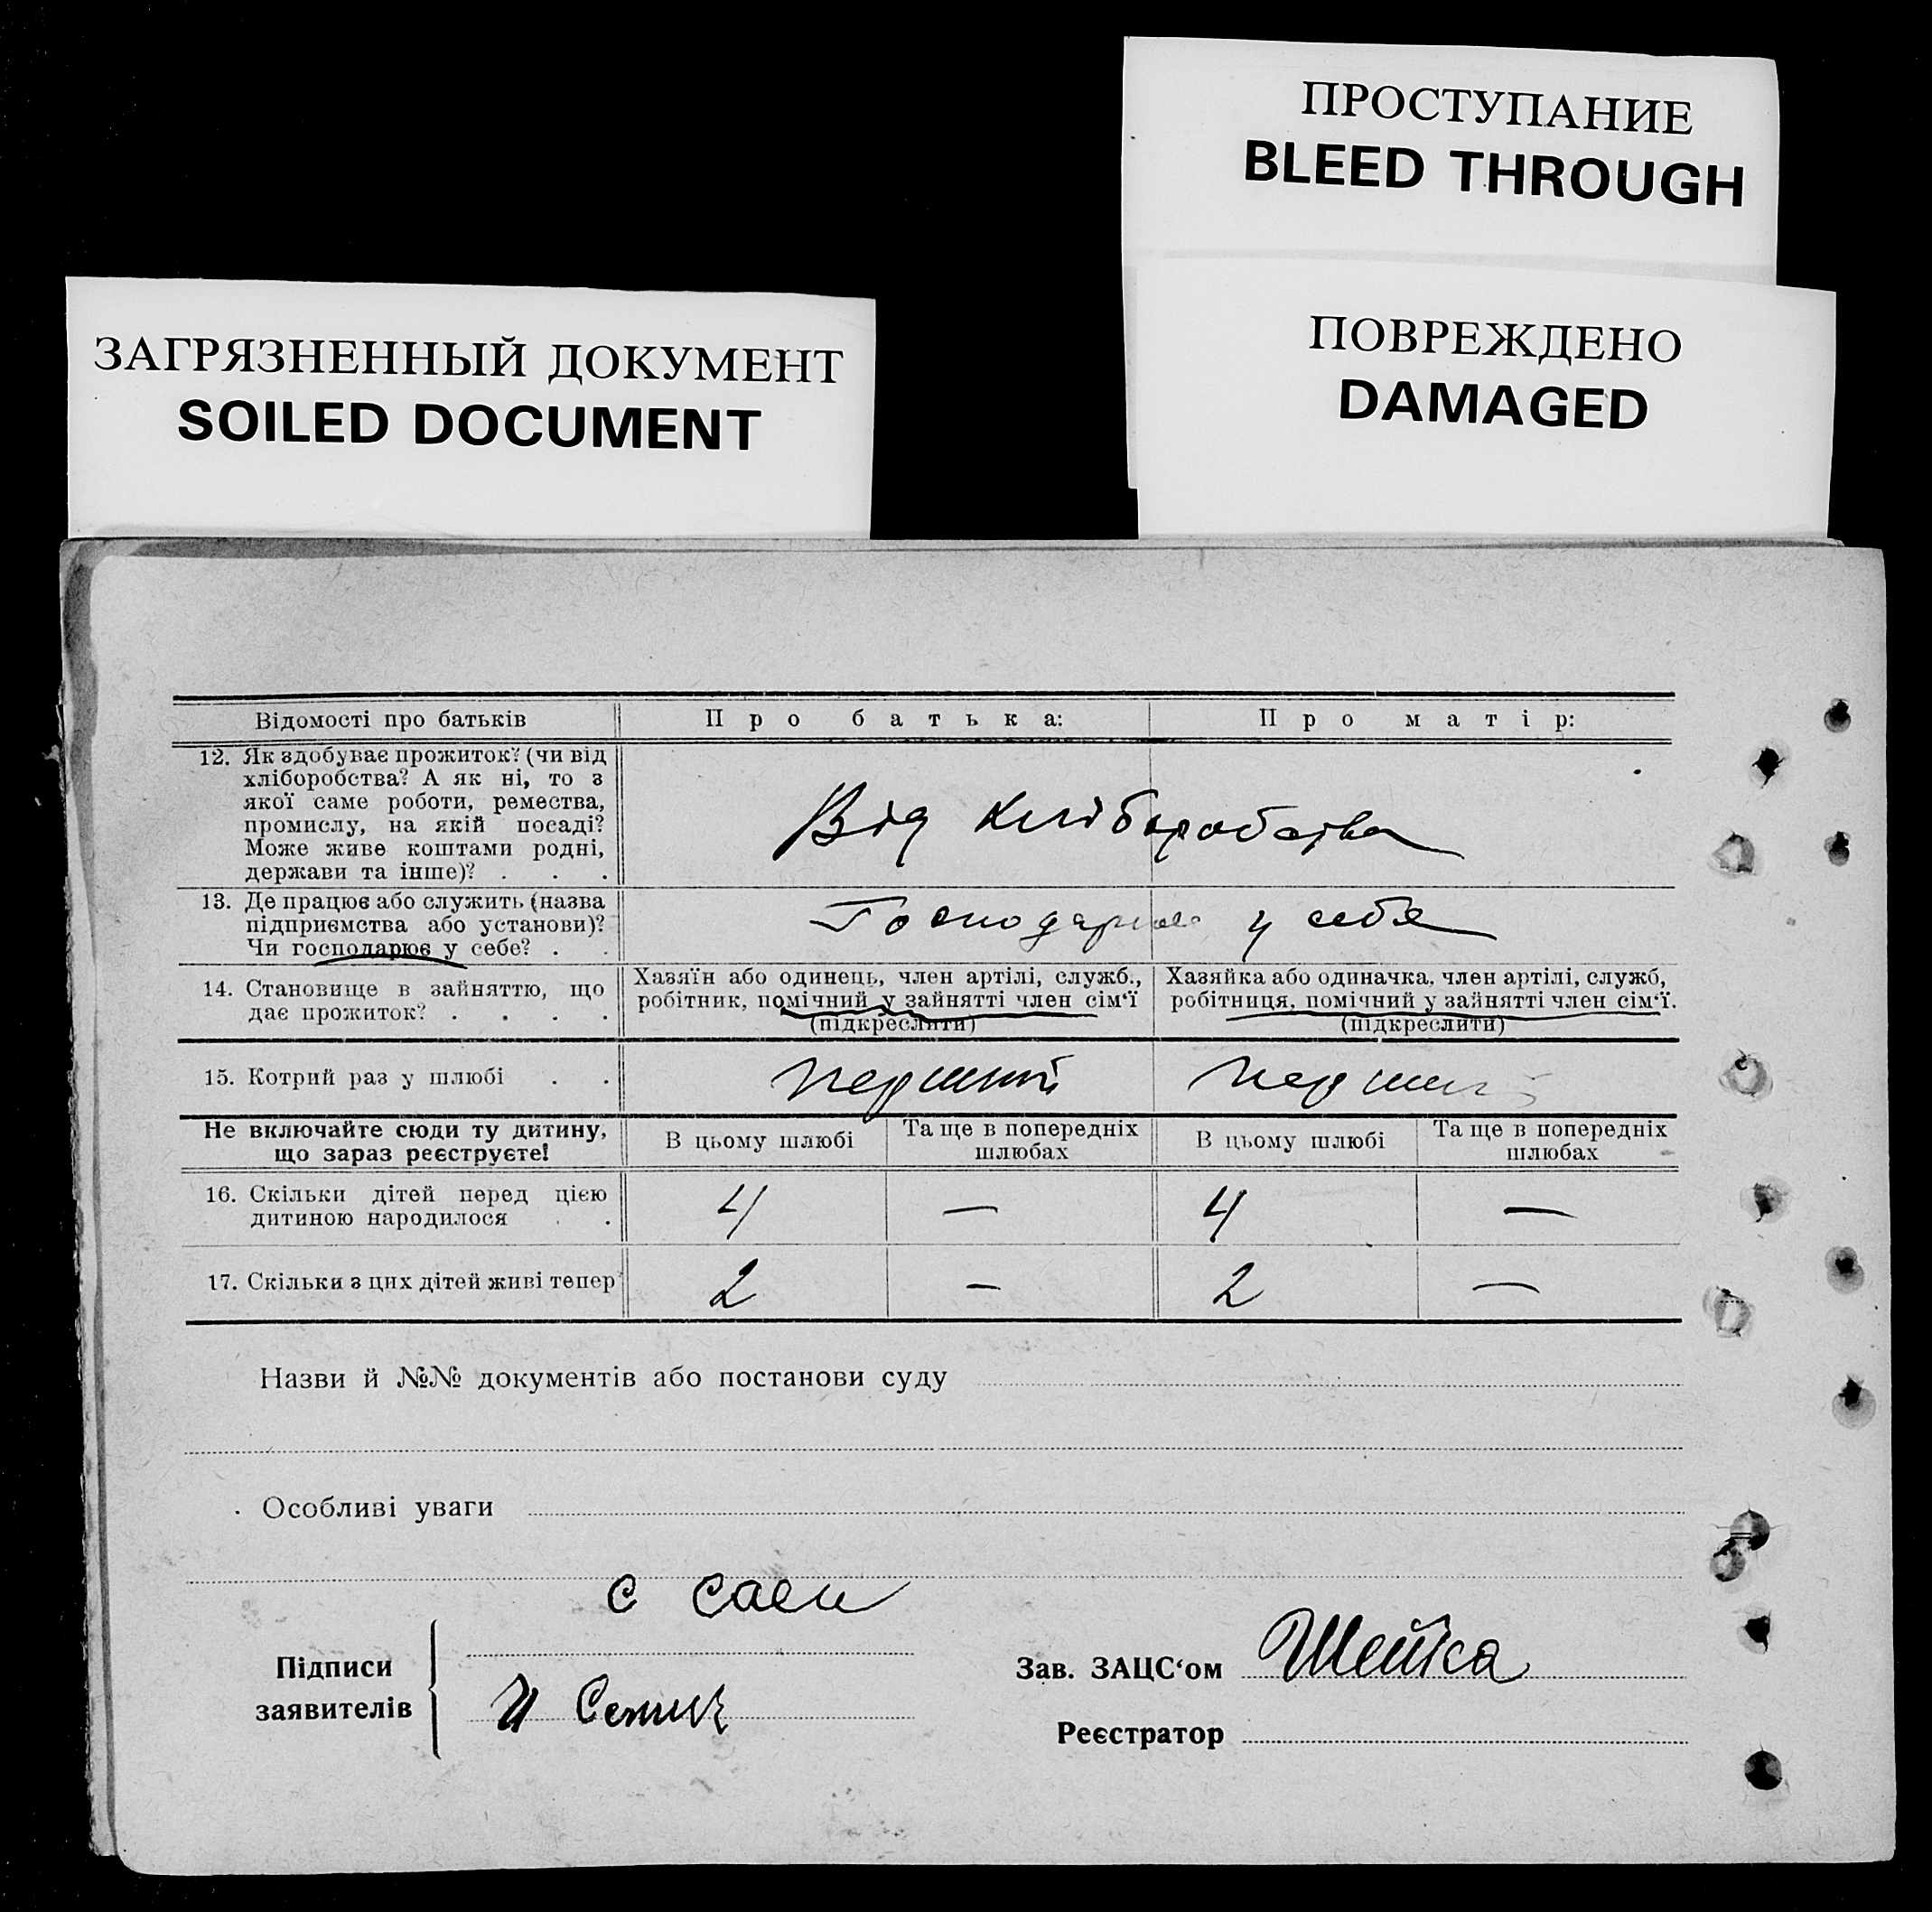 ПРОСТУПАНИЕ
BLEED THROUGH
ПОВРЕЖДЕНО
DAMAGED
ЗАГРЯЗНЕННЫЙ ДОКУМЕНТ
SOILED DOCUMENT
Відомості про батьків
Про батька:
Про матір:
12. Як здобуває прожиток? (чи від
хліборобства? А як ні, то з
якої саме роботи, ремества,
промислу, на якій посаді?
Може живе коштами родні,
держави та інше)? . . .
Від хліборобства
13. Де працює або служить (назва
підприємства або установи)?
Чи господарює у себе? . .
Господарює у себя
14. Становище в зайняттю, що
дає прожиток? . . . .
Хазяїн або одинець, член артілі, служб.,
робітник, помічний у зайнятті член сім'ї
(підкреслити)
Хазяйка або одиначка, член артілі, служб,
робітниця, помічний у зайнятті член сім'ї.
(підкреслити)
15. Котрий раз у шлюбі . .
перший
перший
Не включайте сюди ту дитину,
що зараз реєструєте!
В цьому шлюбі
Та ще в попередніх
шлюбах
В цьому шлюбі
Та ще в попередніх
шлюбах
16. Скільки дітей перед цією
дитиною народилося . .
4 — 4 —
17. Скільки з цих дітей живі тепер
2 — 2 —
Назви й №№ документів або постанови суду
Особливі уваги
Підписи
заявителів
Зав. ЗАЦС'ом
Реєстратор